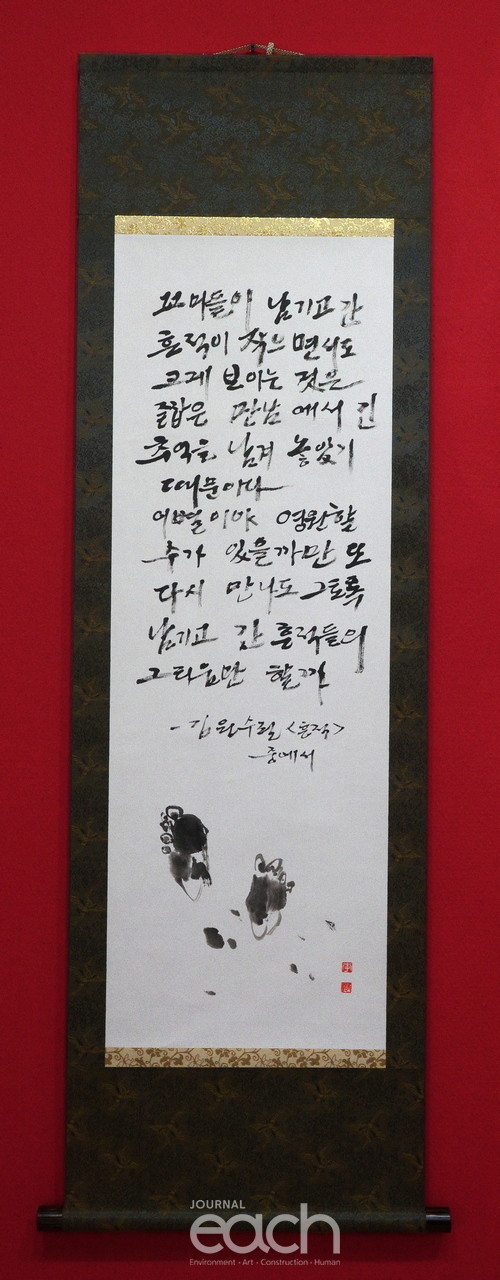 꼬마들이 남기고 간
흔적이 작으면서도
크게 보이는 것은
짧은 만남에서 긴
추억을 남겨 놓았기
때문이다
이별이야 영원할
수가 있을까만 또
다시 만나도 그토록
남기고 간 흔적들의
그리움만 할까
-김완수 <흔적>
-중에서
JOURNAL
each
Environment · Art · Construction · Human